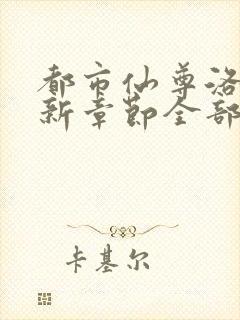 都市仙尊洛
新章节全部
卡基尔